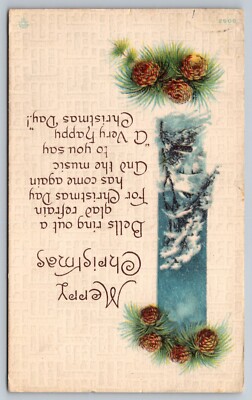 Merry
Christmas
Bells ring out a
glad refrain
For Christmas Day
has come again
And the music
to you say
"A Very Happy
Christmas Day!"